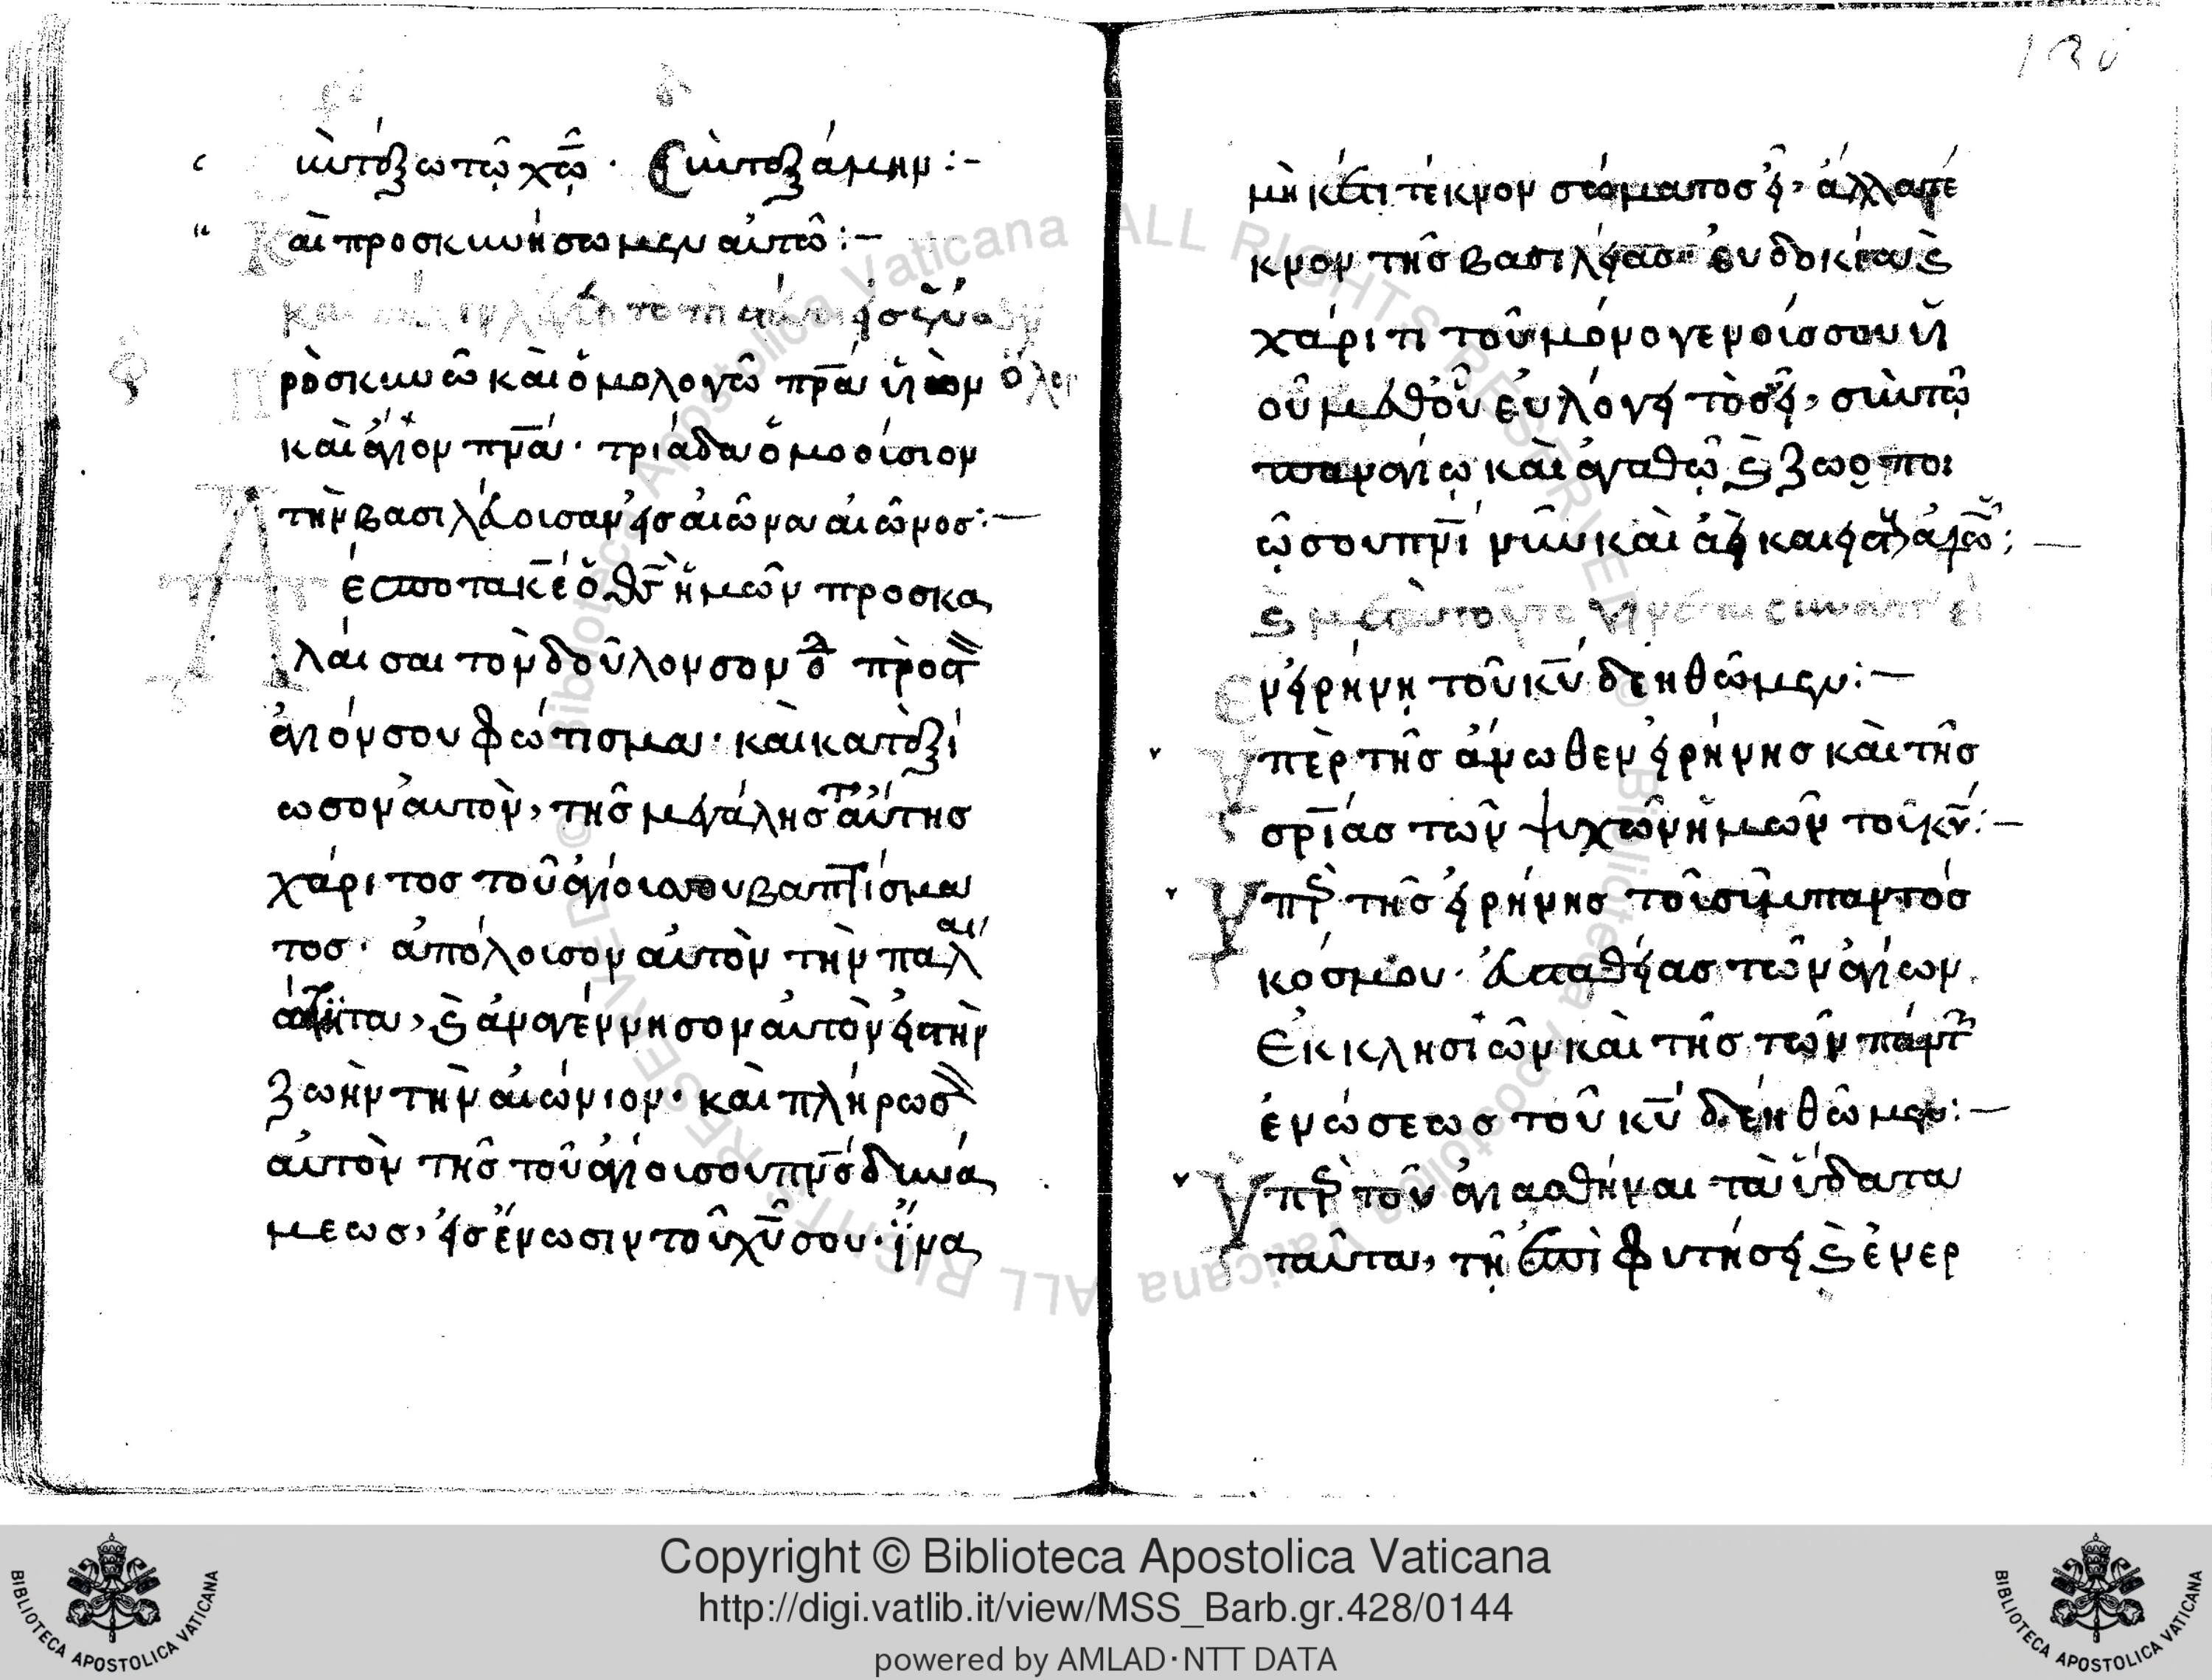 ϲυντάξω τῶ χῶ · Συνταξάμην :-
Καὶ προσκυνήσωμεν αὐτῶ :-
Προσκυνῶ καὶ ὁμολογῶ πρα υἱὸν
καὶ ἅγιον πνα · τριάδα ὁμοούσιον
τὴν βασιλεύουσαν εἰς αἰῶνα αἰῶνος :-
Δέσποτα κε ὁ θς ἡμῶν προσκα
λαίσαι τον δοῦλον σου πρὸς
ἅγιόν σου φώτισμα · καὶ καταξί
ωσον αὐτὸν, τῆς μεγάλης ταύτης
χάριτος τοῦ ἁγίου σου βαπτίσμα
τος · ἀπόλουσον αὐτὸν τὴν παλαι
ότητα, καὶ ἀναγέννησον αὐτὸν εἰς τὴν
ζωὴν τὴν αἰώνιον · καὶ πλήρωσ
αὐτὸν τῆς τοῦ ἁγίου σου πνς δυνά
μεως, εἰς ἕνωσιν τοῦ χυ σου · ἵνα
μὴ κέτι τέκνον σώματος εἶ, ἀλλα τέ
κνον τῆς βασιλείας · εὐδοκία καὶ
χάριτι τοῦ μονογενοῦς σου υἱ
οῦ μεθ οὗ εὐλογητὸς εἶ, σὺν τῶ
παναγίω καὶ ἀγαθῶ καὶ ζωοποι
ῶ σου πνι νῦν καὶ ἀεὶ καὶ εἰς
Ἐν εἰρήνη τοῦ κυ δεηθῶμεν :-
Ὑπὲρ τῆς ἄνωθεν εἰρήνης καὶ τῆς
σρίας τῶν ψυχῶν ἡμῶν τοῦ κυ :-
Ὑπὲρ τῆς εἰρήνης τοῦ σύμπαντος
κόσμου · εὐσταθείας τῶν ἁγίων
Ἐκκλησιῶν καὶ τῆς τῶν πάντ
ἑνώσεως τοῦ κυ δεηθῶμεν :-
Ὑπὲρ τοῦ ἁγιασθήναι τὰ ὕδατα
ταῦτα, τῆ ἐπιφυτήσει καὶ ἐνερ
Copyright © Biblioteca Apostolica Vaticana
http://digi.vatlib.it/view/MSS_Barb.gr.428/0144
powered by AMLAD·NTT DATA